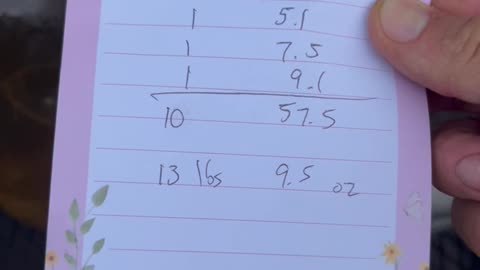 1 5.1
1 7.5
1 9.1
10 57.5
13 lbs 9.5 oz